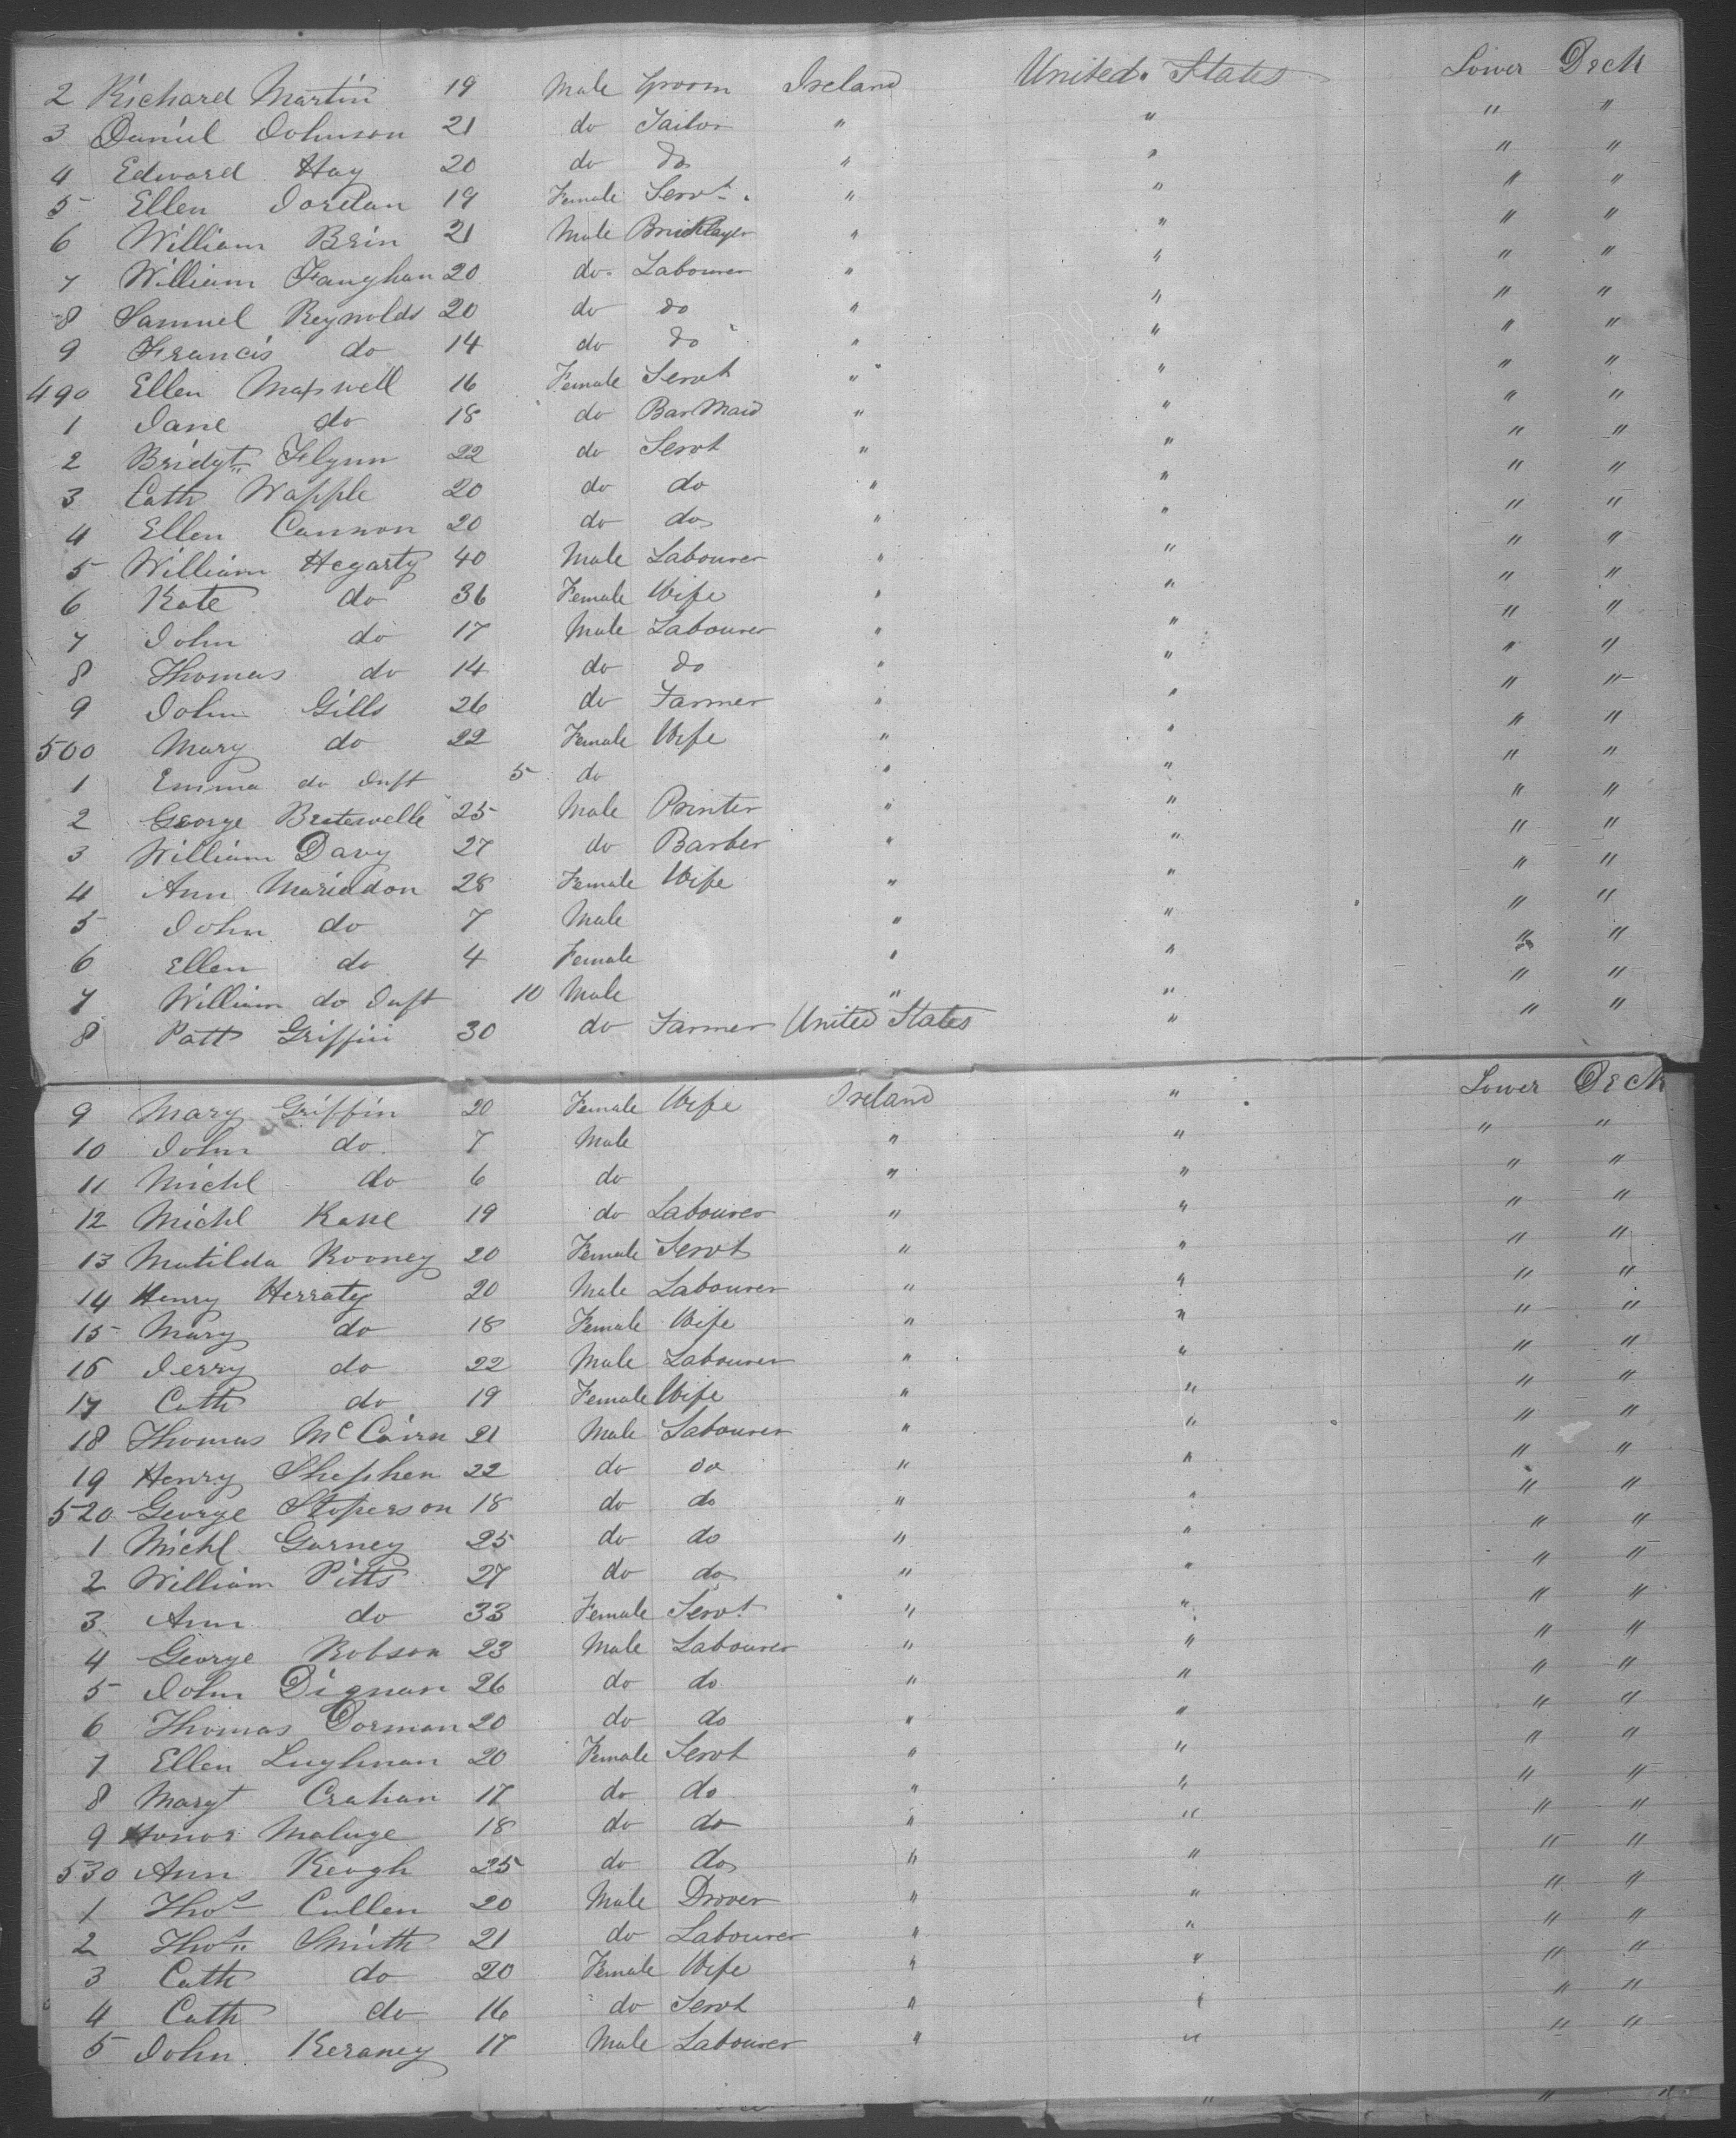 2 Richard Martin 19 Male Groom Ireland United States Lower Deck
3 Daniel Johnson 21 do Tailor " " " "
4 Edward Hay 20 do do " " " "
5 Ellen Jordan 19 Female Servt. " " " "
6 William Brin 21 Male Bricklayer " " " "
7 William Faughan 20 do Labourer " " " "
8 Samuel Reynolds 20 do do " " " "
9 Francis do 14 do do " " " "
490 Ellen Maxwell 16 Female Servt " " " "
1 Jane do 18 do Bar Maid " " " "
2 Bridgt Flynn 22 do Servt " " " "
3 Cath Wapple 20 do do " " " "
4 Ellen Cannon 20 do do " " " "
5 William Hegarty 40 Male Labourer " " " "
6 Kate do 36 Female Wife " " " "
7 John do 17 Male Labourer " " " "
8 Thomas do 14 do do " " " "
9 John Gills 26 do Farmer " " " "
500 Mary do 22 Female Wife " " " "
1 Emma do Inft 5 do " " " "
2 George 25 Male Printer " " " "
3 William Davy 27 do Barber " " " "
4 Ann Mariadon 28 Female Wife " " " "
5 John do 7 Male " " " "
6 Ellen do 4 Female " " " "
7 William do Inft 10 Male " " " "
8 Patt Griffin 30 do Farmer United States " " "
9 Mary Griffin 20 Female Wife Ireland " Lower Deck
10 John do 7 Male " " " "
11 Michl do 6 do " " " "
12 Michl Kane 19 do Labourer " " " "
13 Matilda Rooney 20 Female Servt " " " "
14 Henry Herraty 20 Male Labourer " " " "
15 Mary do 18 Female Wife " " " "
16 Jerry do 22 Male Labourer " " " "
17 Cath do 19 Female Wife " " " "
18 Thomas McCairn 21 Male Labourer " " " "
19 Henry Shephen 22 do do " " " "
520 George Stoperson 18 do do " " " "
1 Michl Garney 25 do do " " " "
2 William Pitts 27 do do " " " "
3 Ann do 33 Female Servt " " " "
4 George Robson 23 Male Labourer " " " "
5 John Dignan 26 do do " " " "
6 Thomas Dorman 20 do do " " " "
7 Ellen Lughnan 20 Female Servt " " " "
8 Margt Crahan 17 do do " " " "
9 Honor Maluge 18 do do " " " "
530 Ann Keogh 25 do do " " " "
1 Thos Cullen 20 Male Drover " " " "
2 Thos Smith 21 do Labourer " " " "
3 Cath do 20 Female Wife " " " "
4 Cath do 16 do Servt " " " "
5 John Keraney 17 Male Labourer " " " "
" " "